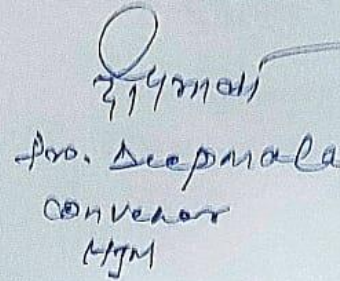 दीपमाला
Pro. Deepmala
Convenor
HJM